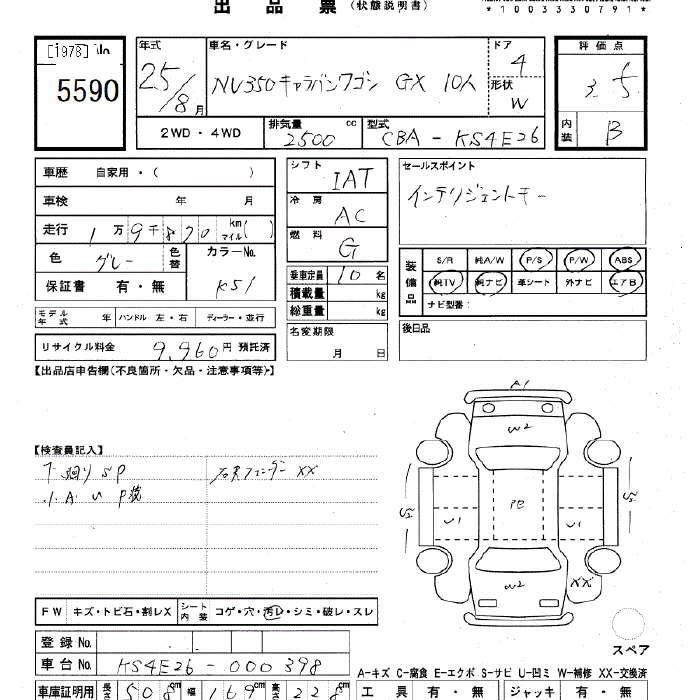 出品票(状態説明書)
*1003330791*
[1978]
5590
年式
25/8月
車名・グレード
NV350キャラバンワゴン GX 10人
ドア
4
形状
W
評価点
3.5
内装
B
2WD・4WD
排気量
2500
cc
型式
CBA-KS4E26
車歴 自家用・( )
車検 年 月
走行 1万9千820 km(マイル)
色 グレー
色替
カラーNo.
K51
保証書 有・無
モデル年式 年 ハンドル 左・右 ディーラー・並行
リサイクル料金 9,960円 預託済
シフト
IAT
冷房
AC
燃料
G
乗車定員 10名
積載量 kg
総重量 kg
名変期限
月 日
セールスポイント
インテリジェントキー
装備品
S/R 純A/W P/S P/W ABS
純TV 純ナビ 革シート 外ナビ エアB
ナビ型番:
後日品
【出品店申告欄(不良箇所・欠品・注意事項等)】
【検査員記入】
下廻り SP
右Rフェンダー XX
A1
W2
PE
U1
U1
W2
XX
FW キズ・トビ石・割レX シート内装 コゲ・穴・汚レ・シミ・破レ・スレ
登録No.
車台No. KS4E26-000398
車庫証明用 長さ 508cm 幅 169cm 高さ 228cm
スペア
A-キズ C-腐食 E-エクボ S-サビ U-凹ミ W-補修 XX-交換済
工具 有・無 ジャッキ 有・無